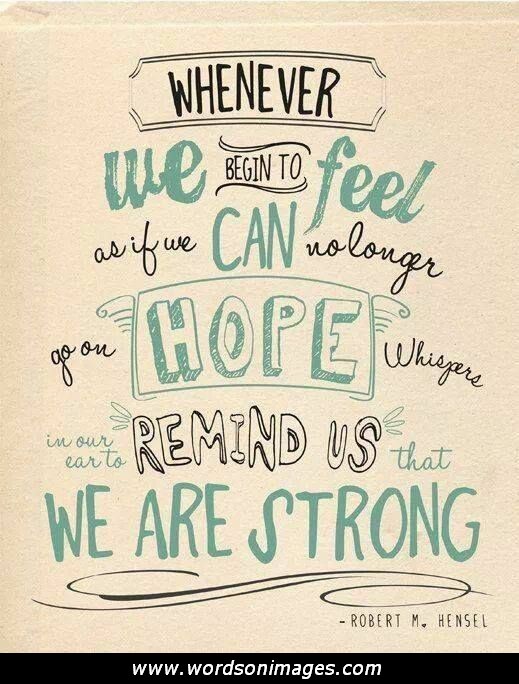 WHENEVER
we BEGIN TO feel
as if we CAN no longer
go on HOPE Whispers
in our
ear to REMIND US that
WE ARE STRONG
- ROBERT M. HENSEL
www.wordsonimages.com